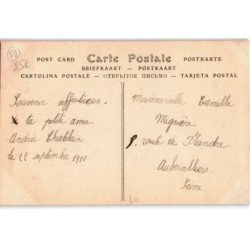 (59)
25€
POST CARD Carte Postale POSTKARTE
BRIEFKAART — POSTKAART
CARTOLINA POSTALE — ОТКРЫТОЕ ПИСЬМО — TARJETA POSTAL
Souvenir affectueux
ta petite amie
Andrée Chatelain
le 22 septembre 1910
Mademoiselle Camille
route de Flandre
Aubervilliers
Seine